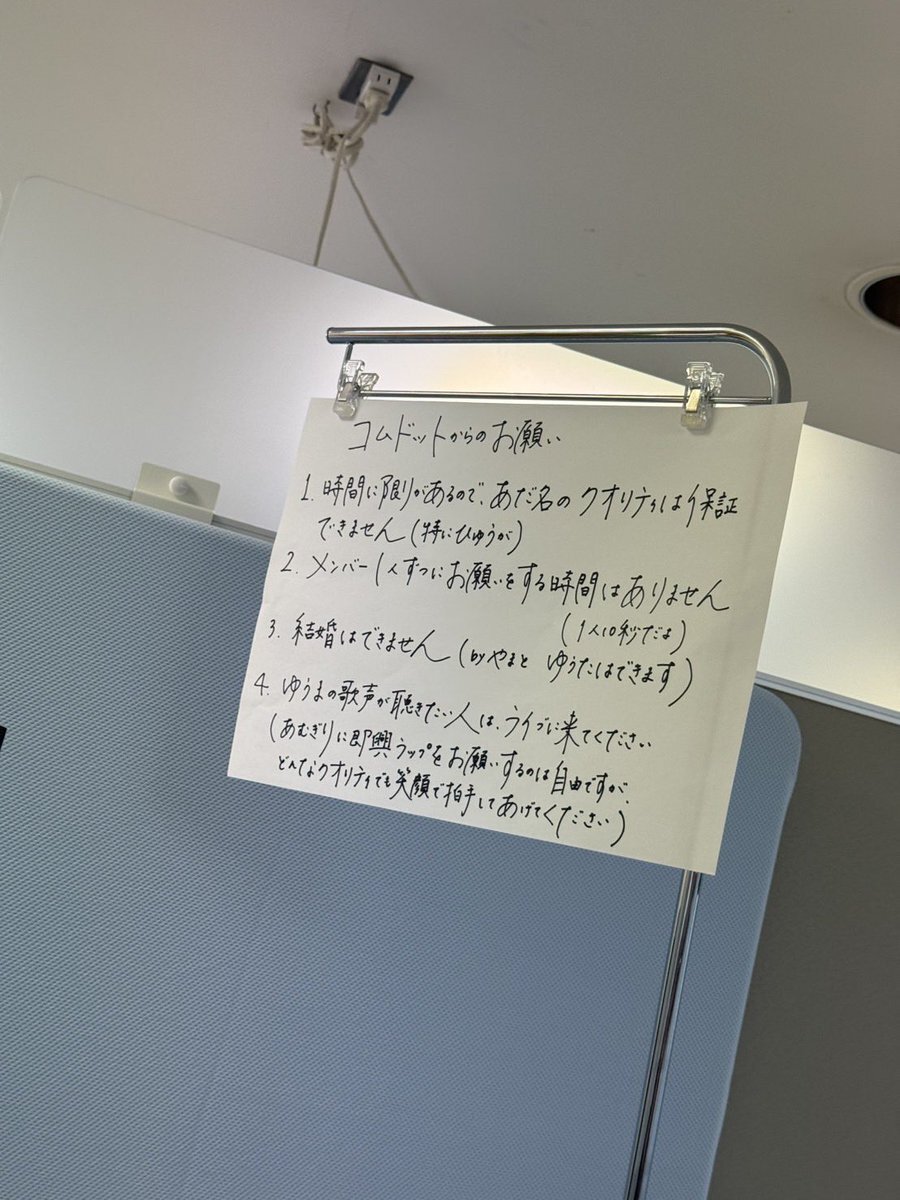 コムドットからのお願い
1. 時間に限りがあるので、あだ名のクオリティは保証
できません(特にひゅうが)
2. メンバー1人ずつにお願いをする時間はありません
(1人10秒だよ)
3. 結婚はできません(byやまと ゆうたはできます)
4. ゆうまの歌声が聴きたい人は、ライブに来てください
(あむぎりに即興ラップをお願いするのは自由ですが、
どんなクオリティでも笑顔で拍手してあげてください)